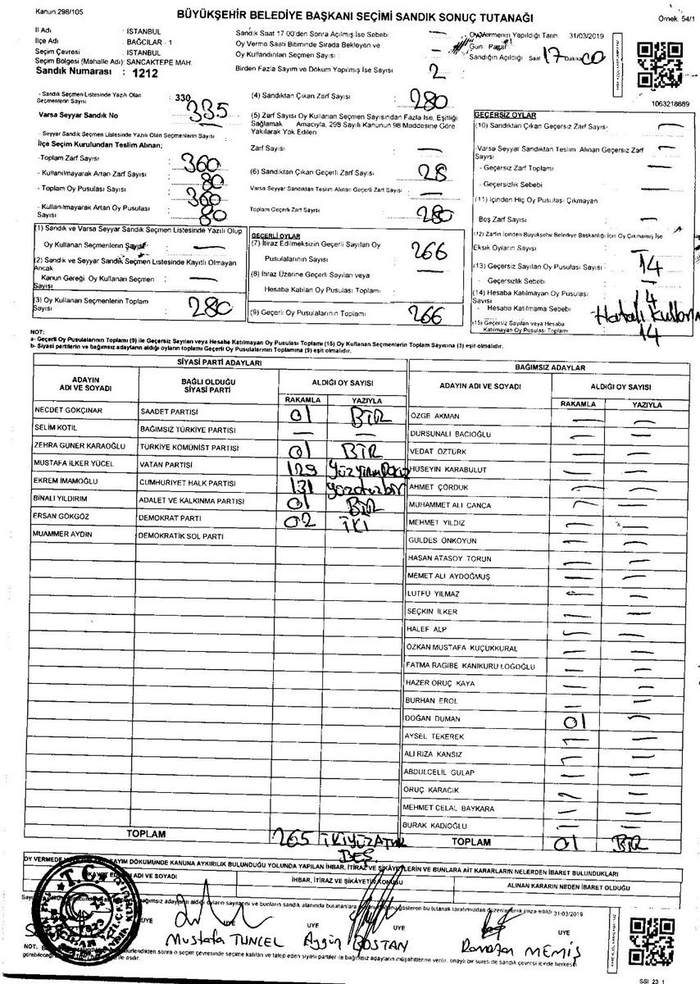 Kanun:298/105
BÜYÜKŞEHİR BELEDİYE BAŞKANI SEÇİMİ SANDIK SONUÇ TUTANAĞI
Örnek: 54/1
İl Adı : İSTANBUL
İlçe Adı : BAĞCILAR - 1
Seçim Çevresi : İSTANBUL
Seçim Bölgesi (Mahalle Adı): SANCAKTEPE MAH.
Sandık Numarası : 1212
Sandık Saat 17:00'den Sonra Açılmış İse Sebebi :
Oy Verme Saati Bitiminde Sırada Bekleyen ve
Oy Kullandırılan Seçmen Sayısı :
Birden Fazla Sayım ve Döküm Yapılmış İse Sayısı : 2
Oy Vermenin Yapıldığı Tarih 31/03/2019
Gün Pazar
Sandığın Açıldığı Saat 17 Dakika 00
1063218689
- Sandık Seçmen Listesinde Yazılı Olan Seçmenlerin Sayısı : 330
335
Varsa Seyyar Sandık No
- Seyyar Sandık Seçmen Listesinde Yazılı Olan Seçmenlerin Sayısı :
İlçe Seçim Kurulundan Teslim Alınan;
-Toplam Zarf Sayısı : 360
- Kullanılmayarak Artan Zarf Sayısı : 80
- Toplam Oy Pusulası Sayısı : 360
- Kullanılmayarak Artan Oy Pusulası Sayısı : 80
(1) Sandık ve Varsa Seyyar Sandık Seçmen Listesinde Yazılı Olup
Oy Kullanan Seçmenlerin Sayısı :
(2) Sandık ve Seyyar Sandık Seçmen Listesinde Kayıtlı Olmayan Ancak
Kanun Gereği Oy Kullanan Seçmen Sayısı :
(3) Oy Kullanan Seçmenlerin Toplam Sayısı : 280
(4) Sandıktan Çıkan Zarf Sayısı : 280
(5) Zarf Sayısı Oy Kullanan Seçmen Sayısından Fazla İse, Eşitliği
Sağlamak Amacıyla, 298 Sayılı Kanunun 98 Maddesine Göre
Yakılarak Yok Edilen
Zarf Sayısı :
(6) Sandıktan Çıkan Geçerli Zarf Sayısı : 28
Varsa Seyyar Sandıktan Teslim Alınan Geçerli Zarf Sayısı :
Toplam Geçerli Zarf Sayısı : 280
GEÇERLİ OYLAR
(7) İtiraz Edilmeksizin Geçerli Sayılan Oy
Pusulalarının Sayısı : 266
(8) İtiraz Üzerine Geçerli Sayılan veya
Hesaba Katılan Oy Pusulası Toplamı :
(9) Geçerli Oy Pusulalarının Toplamı : 266
GEÇERSİZ OYLAR
(10) Sandıktan Çıkan Geçersiz Zarf Sayısı :
-Varsa Seyyar Sandıktan Teslim Alınan Geçersiz Zarf Sayısı :
- Geçersiz Zarf Toplamı :
- Geçersizlik Sebebi :
(11) İçinden Hiç Oy Pusulası Çıkmayan
Boş Zarf Sayısı :
(12) Zarfın İçinden Büyükşehir Belediye Başkanlığı İçin Oy Çıkmamış İse
Eksik Oyların Sayısı :
(13) Geçersiz Sayılan Oy Pusulası Sayısı : 14
Geçersizlik Sebebi :
(14) Hesaba Katılmayan Oy Pusulası Sayısı :
Hesaba Katılmama Sebebi :
(15) Geçersiz Sayılan veya Hesaba Katılmayan Oy Pusulası Toplamı : 14
NOT:
a- Geçerli Oy Pusulalarının Toplamı (9) ile Geçersiz Sayılan veya Hesaba Katılmayan Oy Pusulası Toplamı (15) Oy Kullanan Seçmenlerin Toplam Sayısına (3) eşit olmalıdır.
b- Siyasi partilerin ve bağımsız adayların aldığı oyların toplamı Geçerli Oy Pusulalarının Toplamına (9) eşit olmalıdır.
SİYASİ PARTİ ADAYLARI
ADAYIN ADI VE SOYADI BAĞLI OLDUĞU SİYASİ PARTİ ALDIĞI OY SAYISI RAKAMLA YAZIYLA
NECDET GÖKÇINAR SAADET PARTİSİ 01 BİR
SELİM KOTİL BAĞIMSIZ TÜRKİYE PARTİSİ — —
ZEHRA GÜNER KARAOĞLU TÜRKİYE KOMÜNİST PARTİSİ 01 BİR
MUSTAFA İLKER YÜCEL VATAN PARTİSİ 129
EKREM İMAMOĞLU CUMHURİYET HALK PARTİSİ 131 yüzotuzbir
BİNALİ YILDIRIM ADALET VE KALKINMA PARTİSİ 01 BİR
ERSAN GÖKGÖZ DEMOKRAT PARTİ 02 İKİ
MUAMMER AYDIN DEMOKRATİK SOL PARTİ
TOPLAM 265 İKİYÜZATMIŞ BEŞ
BAĞIMSIZ ADAYLAR
ADAYIN ADI VE SOYADI ALDIĞI OY SAYISI RAKAMLA YAZIYLA
ÖZGE AKMAN — —
DURSUNALİ BACIOĞLU — —
VEDAT ÖZTÜRK — —
HÜSEYİN KARABULUT — —
AHMET ÇÖRDÜK — —
MUHAMMET ALİ CANCA — —
MEHMET YILDIZ — —
GÜLDES ÖNKOYUN — —
HASAN ATASOY TORUN — —
MEMET ALİ AYDOĞMUŞ — —
LUTFÜ YILMAZ — —
SEÇKİN İLKER — —
HALEF ALP — —
ÖZKAN MUSTAFA KÜÇÜKKURAL — —
FATMA RAGİBE KANIKURU LOĞOĞLU — —
HAZER ORUÇ KAYA — —
BURHAN EROL — —
DOĞAN DUMAN 01 —
AYSEL TEKEREK — —
ALİ RIZA KANSIZ — —
ABDULCELİL GULAP — —
ORUÇ KARACIK — —
MEHMET CELAL BAYKARA — —
BURAK KADIOĞLU — —
TOPLAM 01 BİR
OY VERMEDE SAYIM DÖKÜMÜNDE KANUNA AYKIRILIK BULUNDUĞU YOLUNDA YAPILAN İHBAR, İTİRAZ VE ŞİKAYETLERİN VE BUNLARA AİT KARARLARIN NELERDEN İBARET BULUNDUKLARI
ADI VE SOYADI İHBAR, İTİRAZ VE ŞİKAYETİN KONUSU ALINAN KARARIN NEDEN İBARET OLDUĞU
31/03/2019
ÜYE ÜYE ÜYE ÜYE
Mustafa TUNCEL Ayşin BOSTAN Ramazan MEMİŞ
SSI_23_1